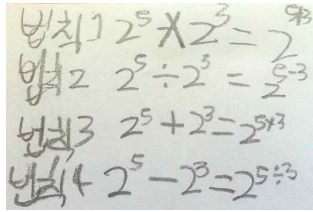 법칙1 2⁵×2³=2⁵⁺³
법칙2 2⁵÷2³=2⁵⁻³
법칙3 2⁵+2³=2⁵⁺³
법칙4 2⁵-2³=2⁵÷³